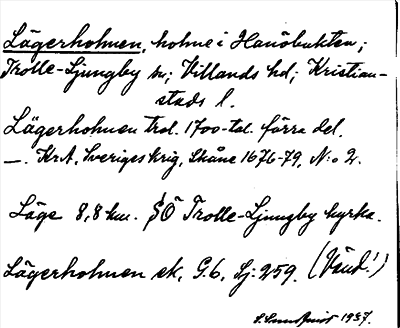 Lägerholmen, holme i Hanöbukten;
Trolle-Ljungby sn; Villands hd; Kristian-
stads l.
Lägerholmen trol. 1700-tal. förra del.
—. KrA, Sveriges krig, Skåne 1676-79, N:o 2.
Läge 8,8 km. SÖ Trolle-Ljungby kyrka.
Lägerholmen ek. G.6, Lj: 259. (Vänd!)
1937.